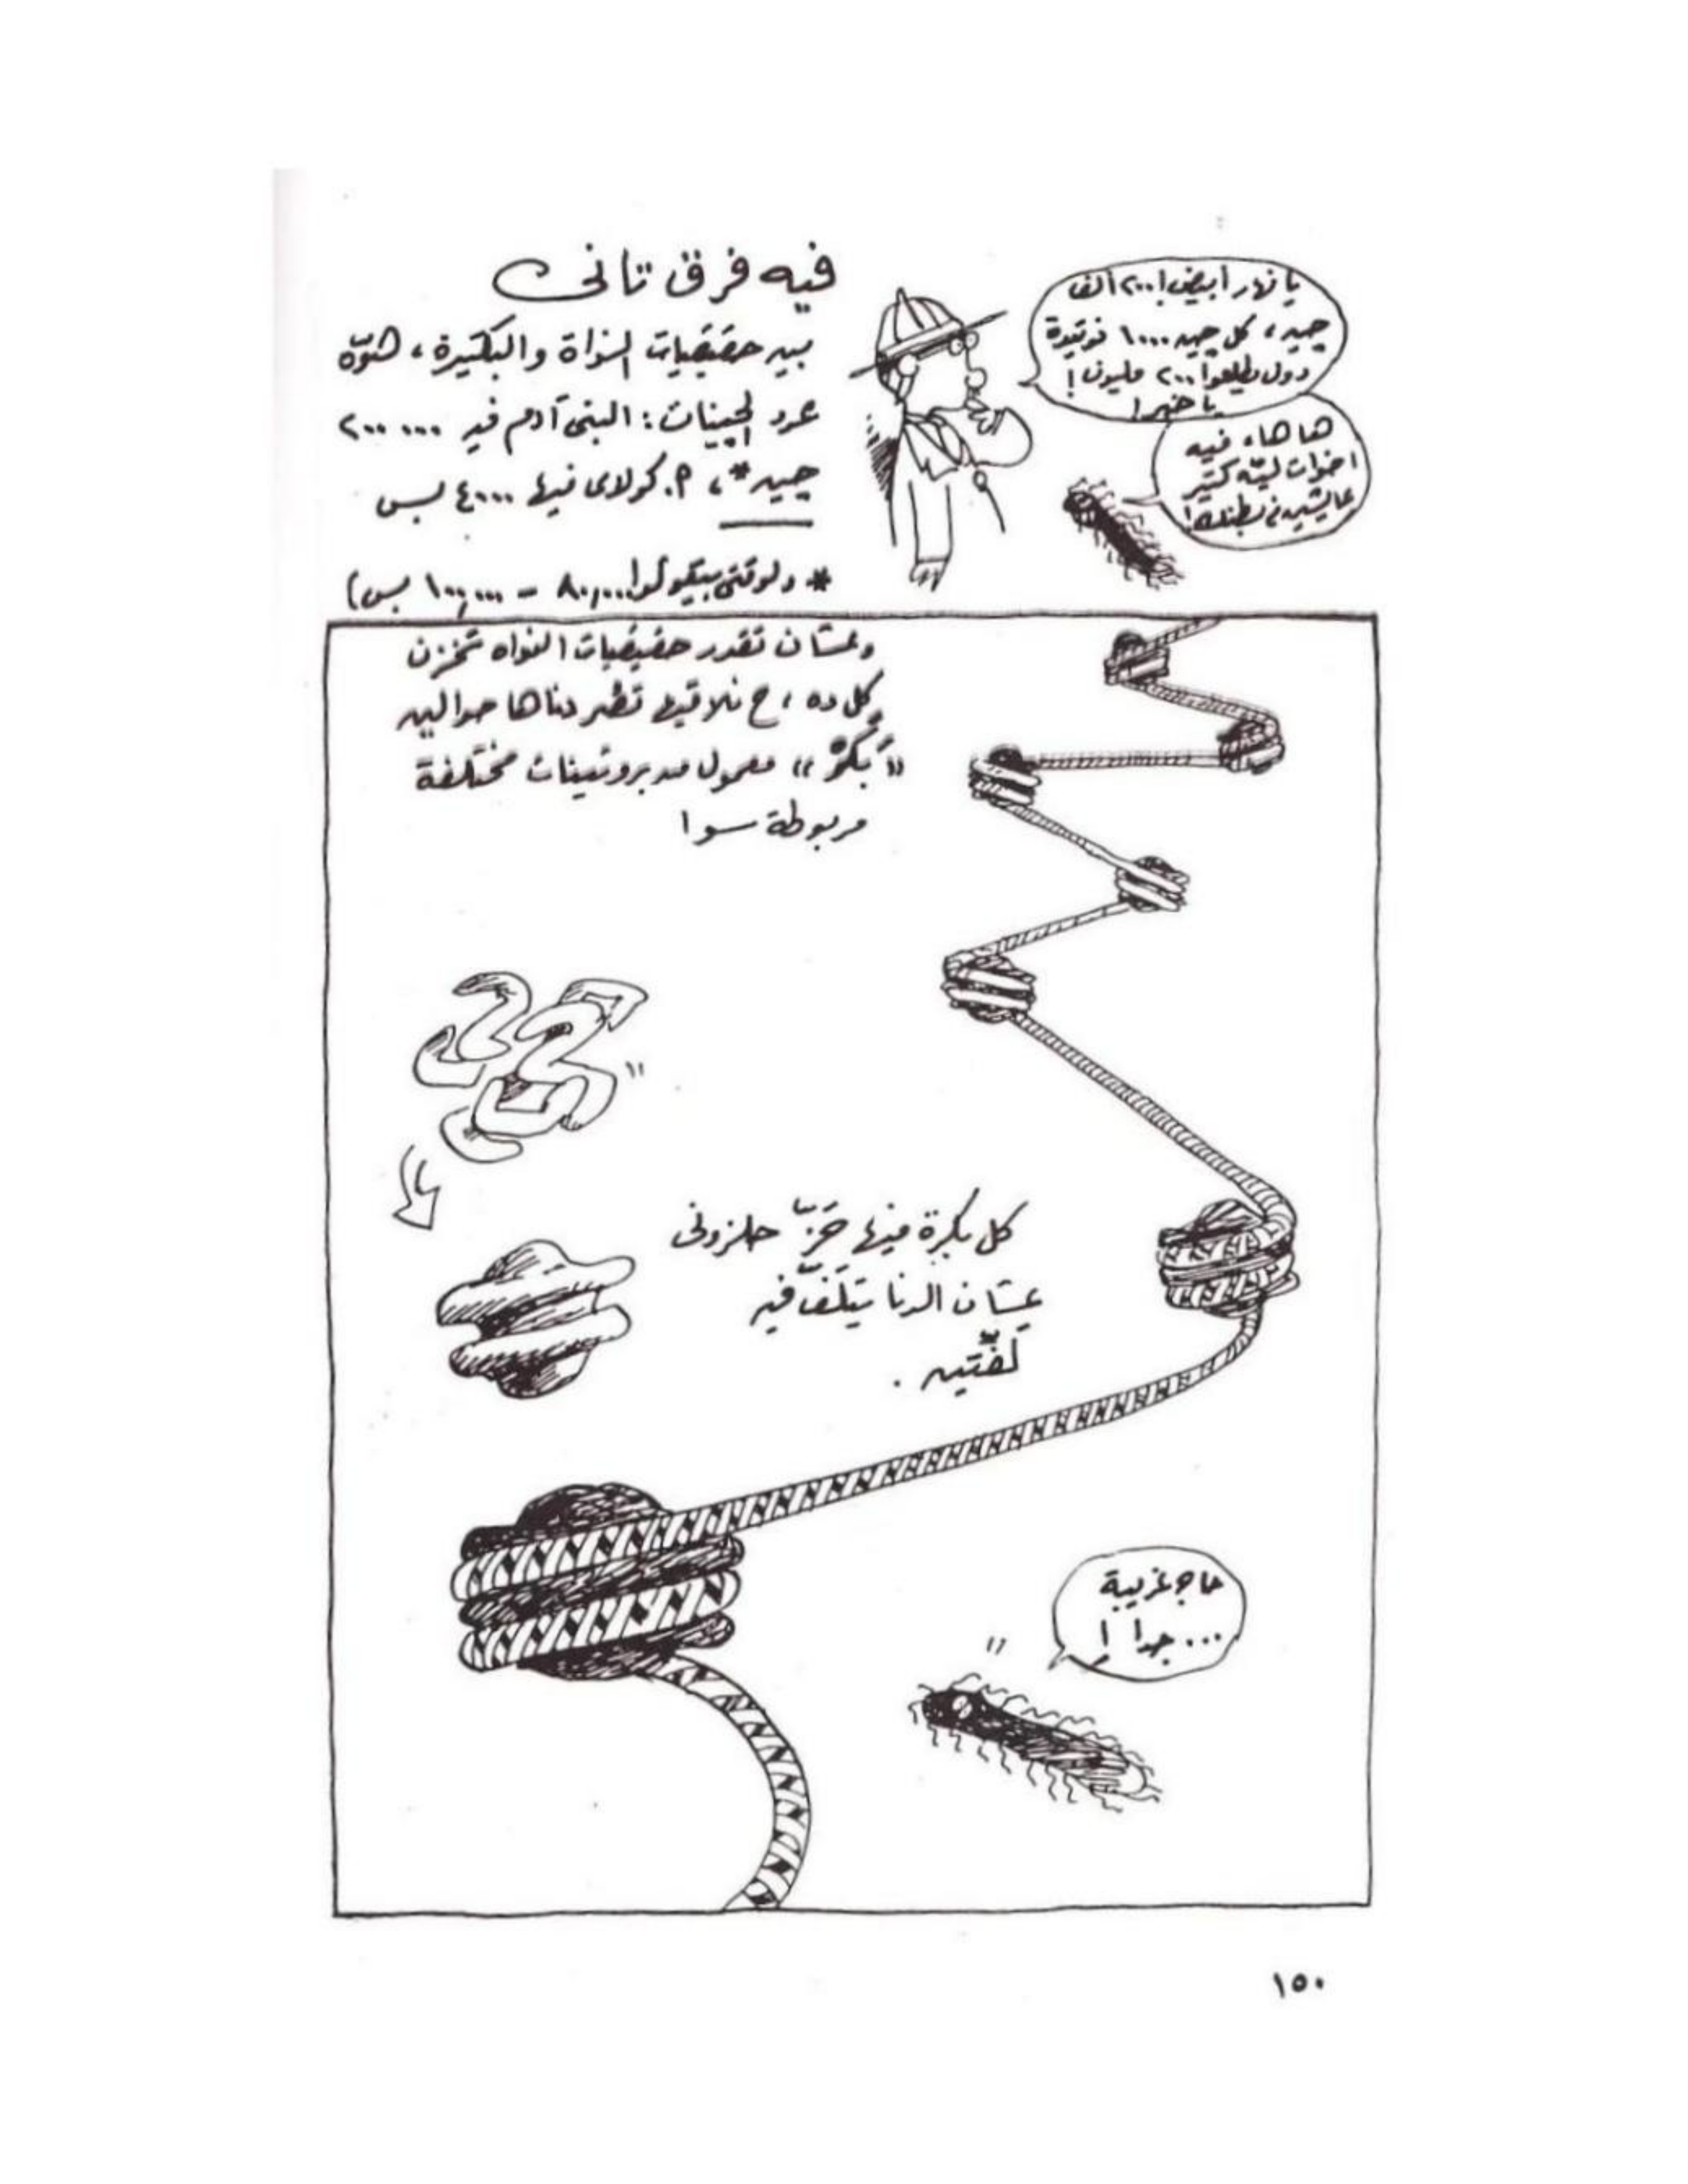 فيه فرق تانى
بين حقيقيات النواة والبكتيرة، هوّه
عدد الچينات: البنى آدم فيه ٢٠٠٠٠٠
چين*، ا. كولاى فيها ٤٠٠٠ بس
* دلوقتى بيقولوا ٨٠,٠٠٠ - ١٠٠,٠٠٠ بس)
يا نهار أبيض! ٢٠٠ ألف
چين، كل چين ١٠٠٠ نوتيدة
دول يطلعوا ٢٠٠ مليون!
يا خبر!
ها ها، فيه
اخوات ليّه كتير
عايشين فى بطنك!
وعشان تقدر حقيقيات النواه تخزن
كل ده، ح نلاقيها تطبر دناها حوالين
«بَكَرْ» معمول من بروتينات مختلفة
مربوطة سوا
كل بكرة فيها حَزّ حلزونى
عشان الدنا يتلفّ فيه
لفّتين.
حاجه غريبة
... جدا !
١٥٠